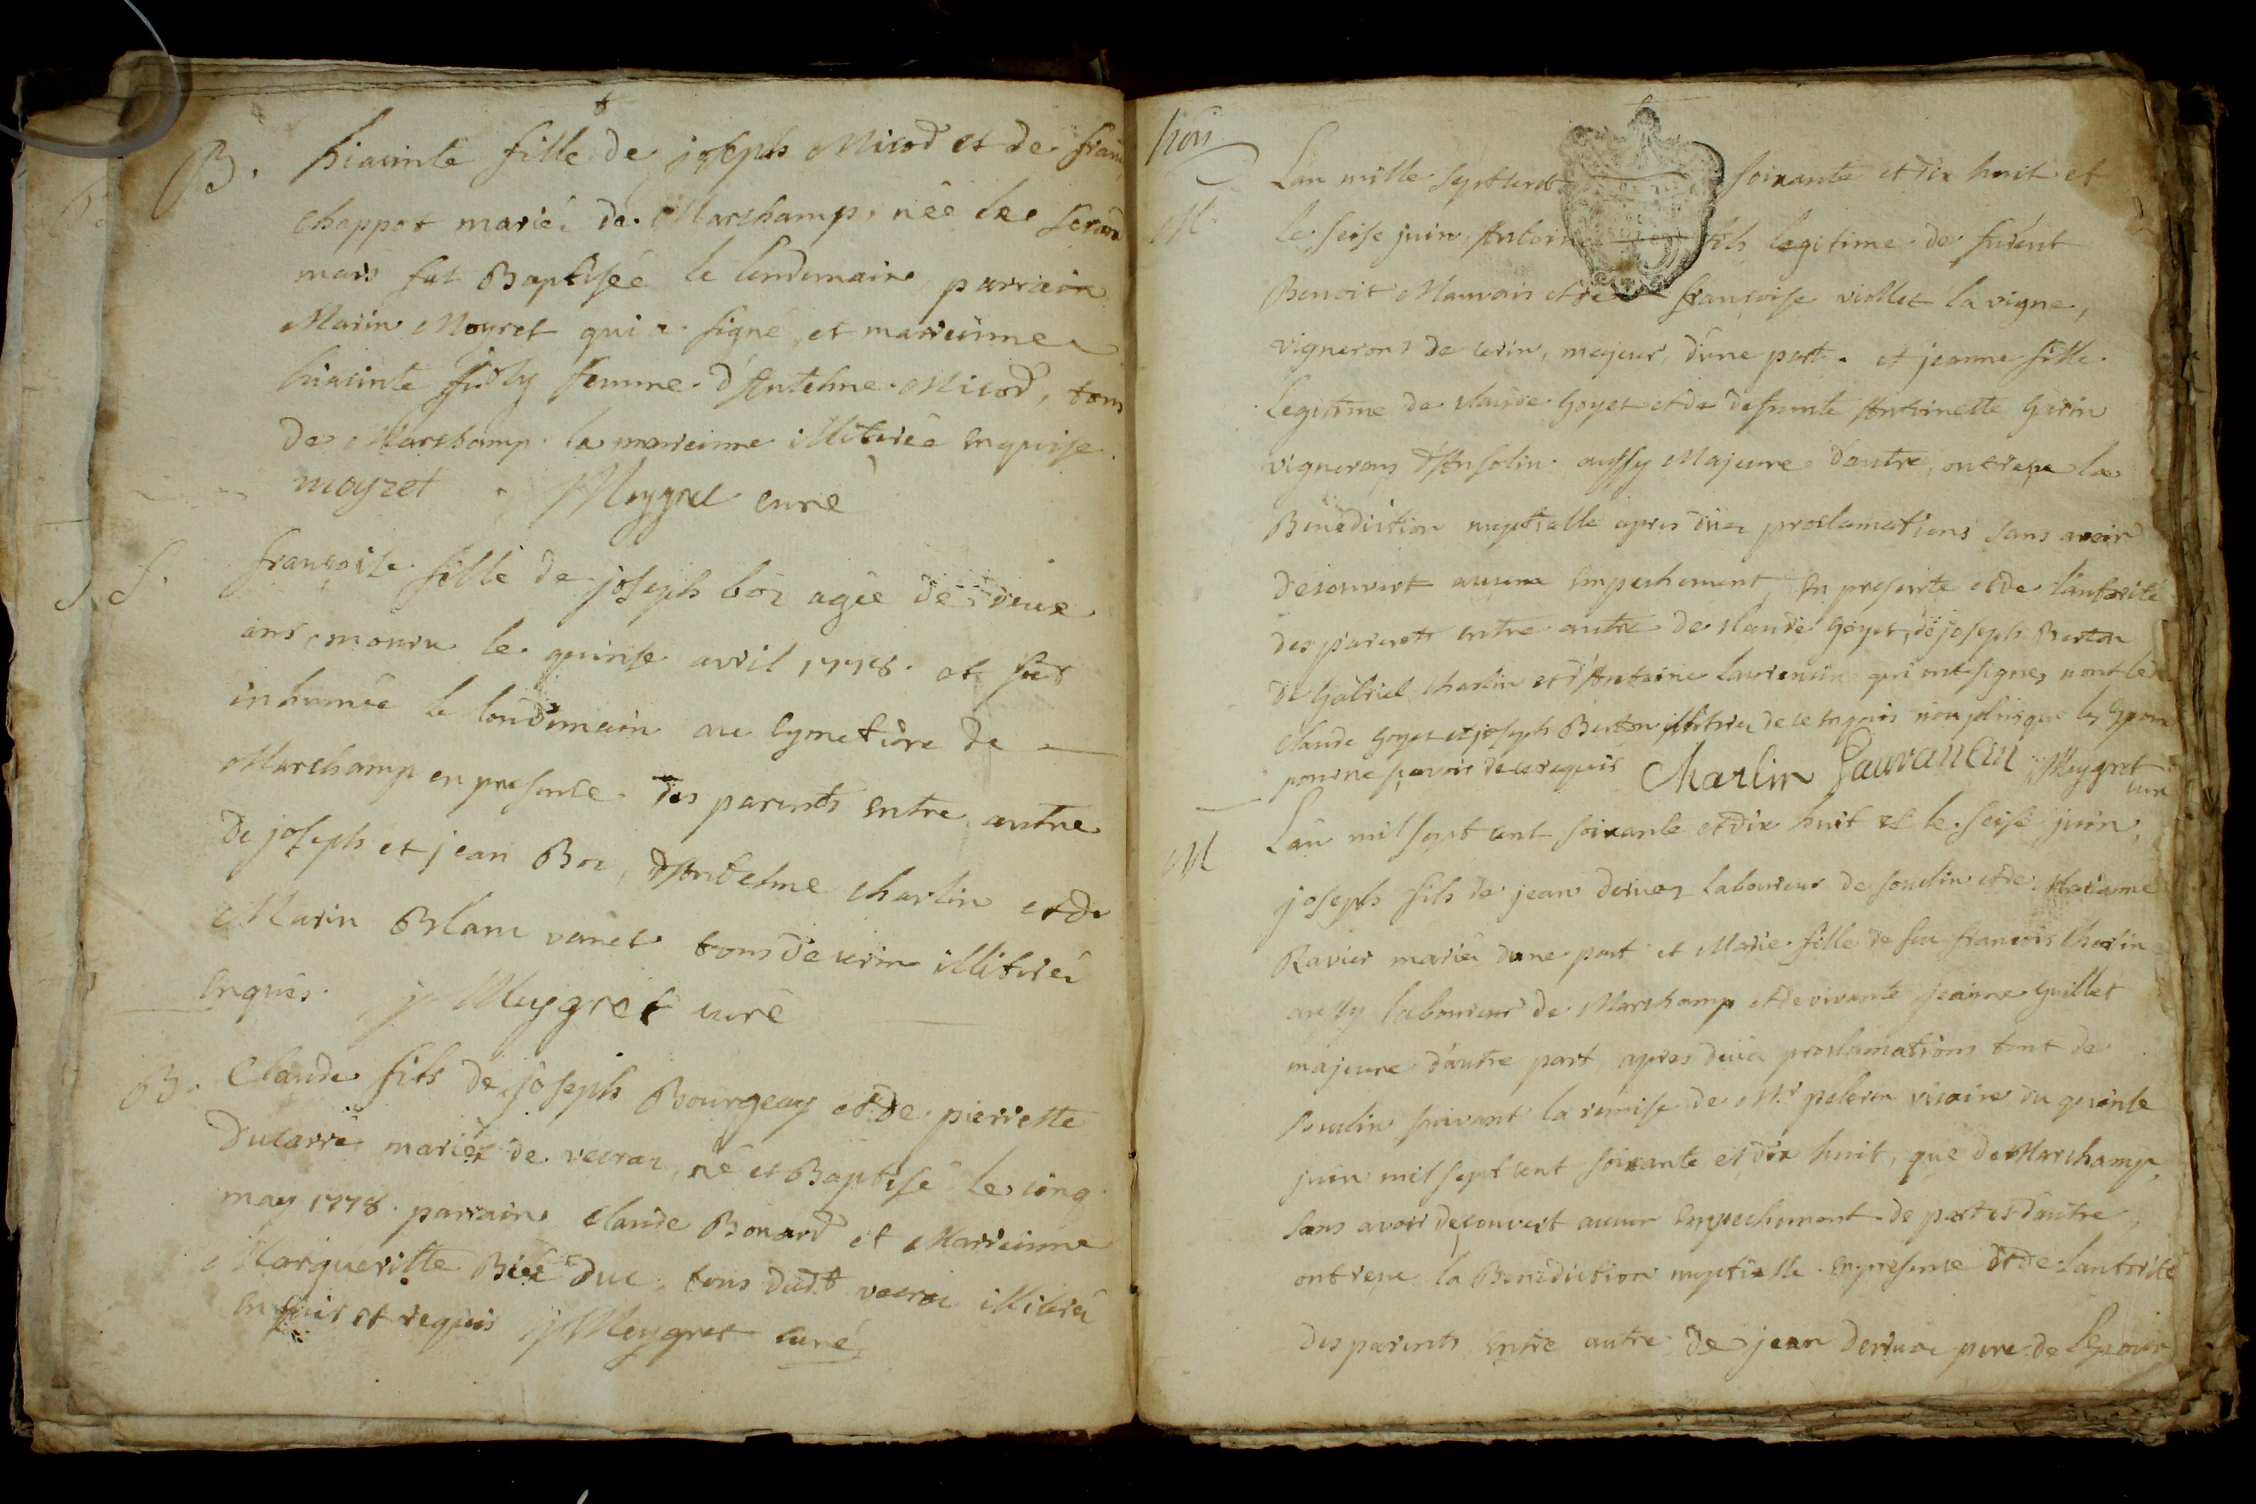 B. hiacinte fille de joseph Micod et de fran
chappot mariés de Marchamp, née le second
mars fut Baptisée le lendemain, parrain
Marin Moyret qui a signé, et marreinne
hiacinte joly femme d'Antelme Micod, tous
de Marchamp la marreinne illiterée enquise
moyret Meygret curé
S. françoise fille de joseph boz agée de deux
ans, mouru le quinse avril 1778. et fut
inhumée le lendemain au cymetière de
Marchamp en presence des parents entre autre
de joseph et jean Boz, d'Antelme charlin et de
Marin Blanc vanet tous de cerin illiterés
enquis. j Meygret curé
B. Claude fils de joseph Bourgeay et de pierrette
Ducarré mariés de vecraz, né et Baptisé le cinq
may 1778. parrain claude Bonard et Marreinne
Margueritte Biée duc, tous dudt vecraz illiterés
enquis et requis j Meygret curé
L'an mille sept cent soixante et dix huit et
M. le seise juin Antoine fils legitime de furent
Benoit Mauvais et de françoise viollet la vigne,
vignerons de cerin, majeur, d'une part. et jeanne fille
Legitime de claude Goyet et de defunte Antoinette Garin
vignerons d'Ansolin aussy Majeure d'autre, ont reçu la
Bénédiction nuptialle apres deux proclamations sans avoir
découvert aucun empechement, en presence et de l'autorité
des parents entre autre de claude Goyet, de joseph Berton
de Gabriel charlin et d'Antoine laurencin qui ont signés, non le
Claude Goyet et joseph Berton illiterés de ce enquis non plus que les Epoux
pour ne sçavoir de ce requis Charlin Lauvancin Meygret curé
M L'an mil sept cent soixante et dix huit et le seise juin,
joseph fils de jean deruaz laboureur de soudin et de Mariane
Ravier mariés d'une part et Marie fille de feu françois Charlin
aussy laboureur de Marchamp et de vivante jeanne Guillet
majeure d'autre part, apres deux proclamations tant de
Soudin suivant la remise de Mr. peleren vicaire du quinse
juin mil sept cent soixante et dix huit, que de Marchamp,
sans avoir découvert aucun Empechement de part et d'autre,
ont reçu la Benediction nuptialle en presence et de l'autorité
des parents entre autre de jean deruaz pere de l'Epoux